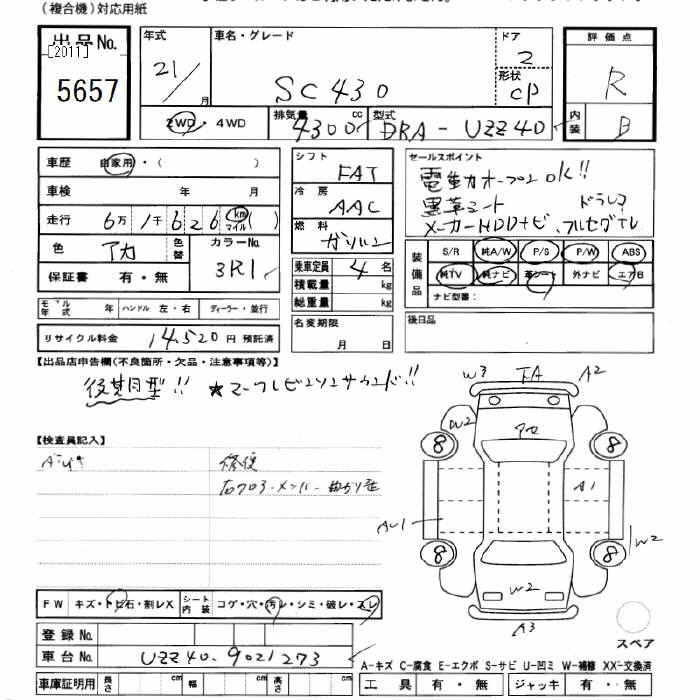 (複合機)対応用紙
出品No.
[2011]
5657
年式
21/
月
車名・グレード
SC430
ドア
2
形状
CP
評価点
R
内装
B
2WD・4WD
排気量
4300
cc
型式
DBA-UZZ40
車歴
自家用・( )
車検 年 月
走行 6万 1千 6 2 6 km マイル ( )
色
アカ
色替
カラーNo.
3R1
保証書 有・無
シフト
FAT
冷房
AAC
燃料
ガソリン
乗車定員 4 名
積載量 kg
総重量 kg
セールスポイント
電動オープンOK!!
黒革シート ドラレコ
メーカーHDDナビ、フルセグTV
装備品
S/R 純A/W P/S P/W ABS
純TV 純ナビ 革シート 外ナビ エアB
ナビ型番:
モデル年式 年 ハンドル 左・右 ディーラー・並行
リサイクル料金 14,520円 預託済
名変期限
月 日
後日品
【出品店申告欄(不良箇所・欠品・注意事項等)】
後期型!! ★マークレビンソンサウンド!!
【検査員記入】
修復
右フロメンバー曲がり
W3 FA A2
W2
8 8
A1
AU1
8 8
W2
W2
A3
スペア
FW キズ・トビ石・割レX シート内装 コゲ・穴・汚レ・シミ・破レ・スレ
登録No.
車台No. UZZ40-9021273
車庫証明用 長さ cm 幅 cm 高さ cm
A-キズ C-腐食 E-エクボ S-サビ U-凹ミ W-補修 XX-交換済
工具 有・無 ジャッキ 有・無